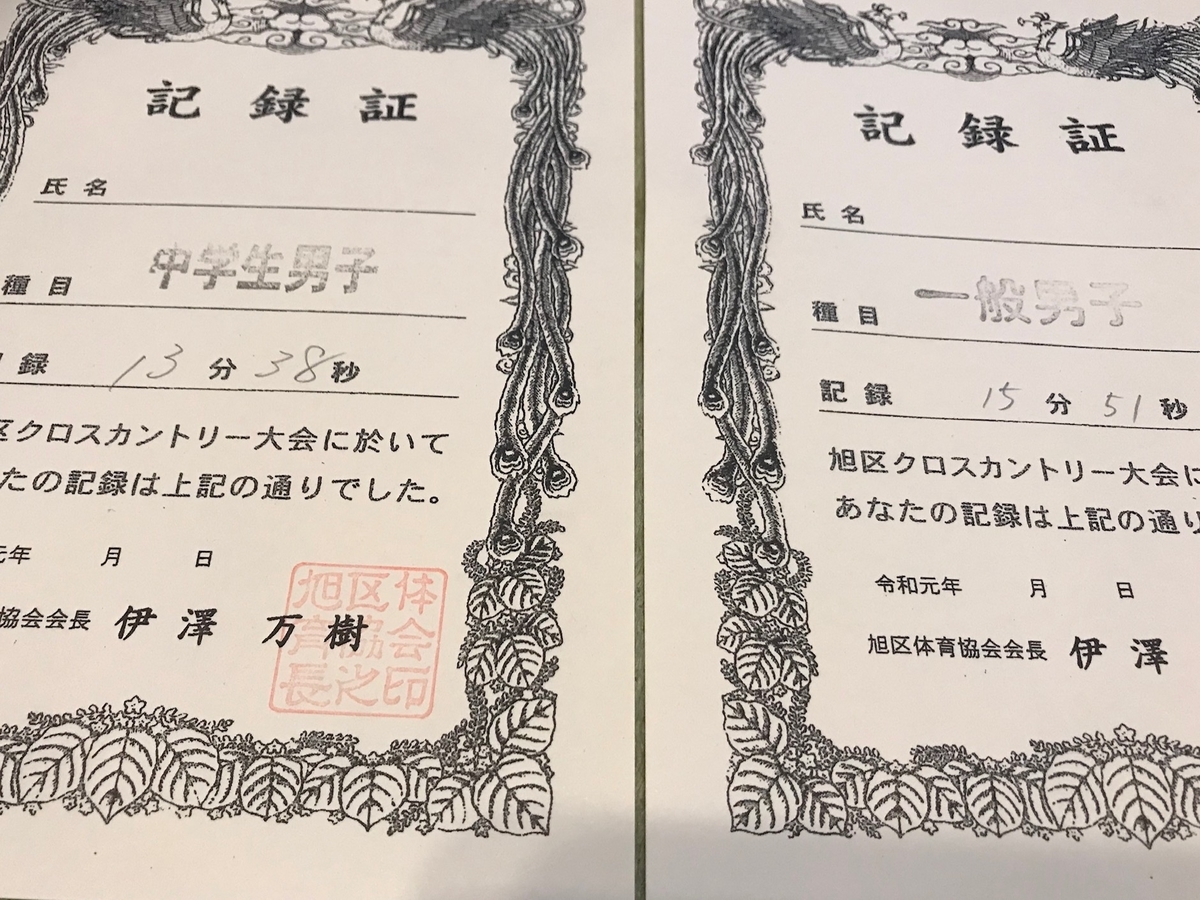 記録証
氏名
種目 中学生男子
録 13分38秒
区クロスカントリー大会に於いて
たの記録は上記の通りでした。
元年 月 日
協会会長 伊澤 万樹
旭区体
育協会
長之印
記録証
氏名
種目 一般男子
記録 15分51秒
旭区クロスカントリー大会に
あなたの記録は上記の通り
令和元年 月 日
旭区体育協会会長 伊澤